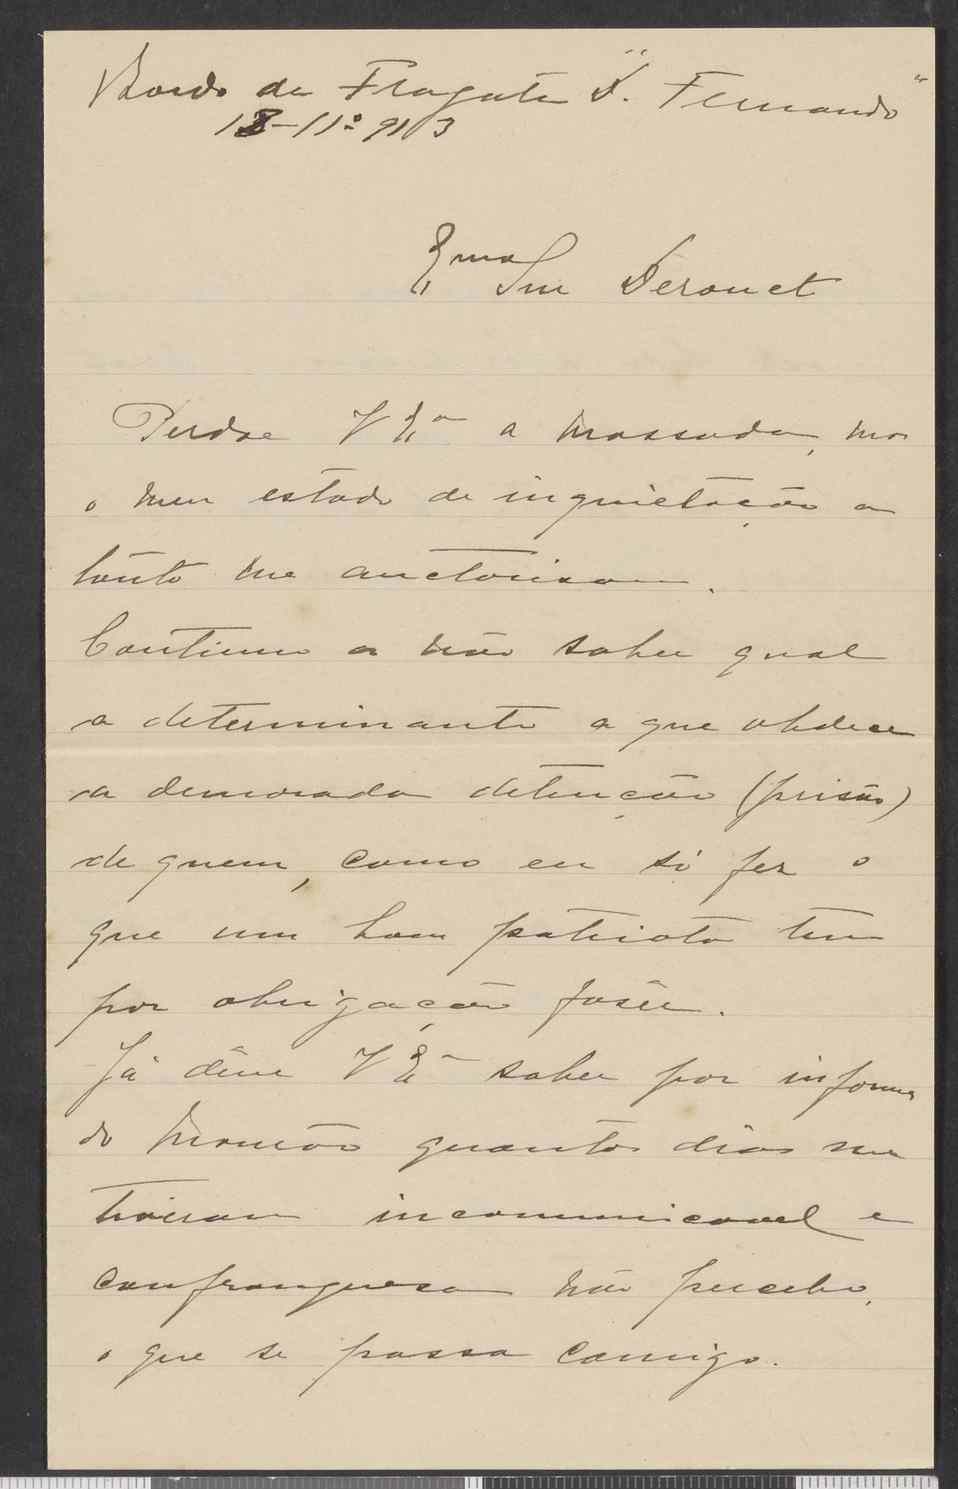 Bordo da Fragata "D. Fernando"
18-11º 913
Exmo Snr Derouet
Perdoe V Exª a massada, mas
o meu estado de inquietação a
tanto me auctorisam.
Continuo a não saber qual
a determinante a que obdece
a demorada detenção (prisão)
de quem, como eu só fez o
que um bom patriota tem
por obrigação fasêr.
Já déve V Exª saber por informa
do quantos dias me
tivéram incommunicavel e
com franquesa não percebo,
o que se passa comigo.